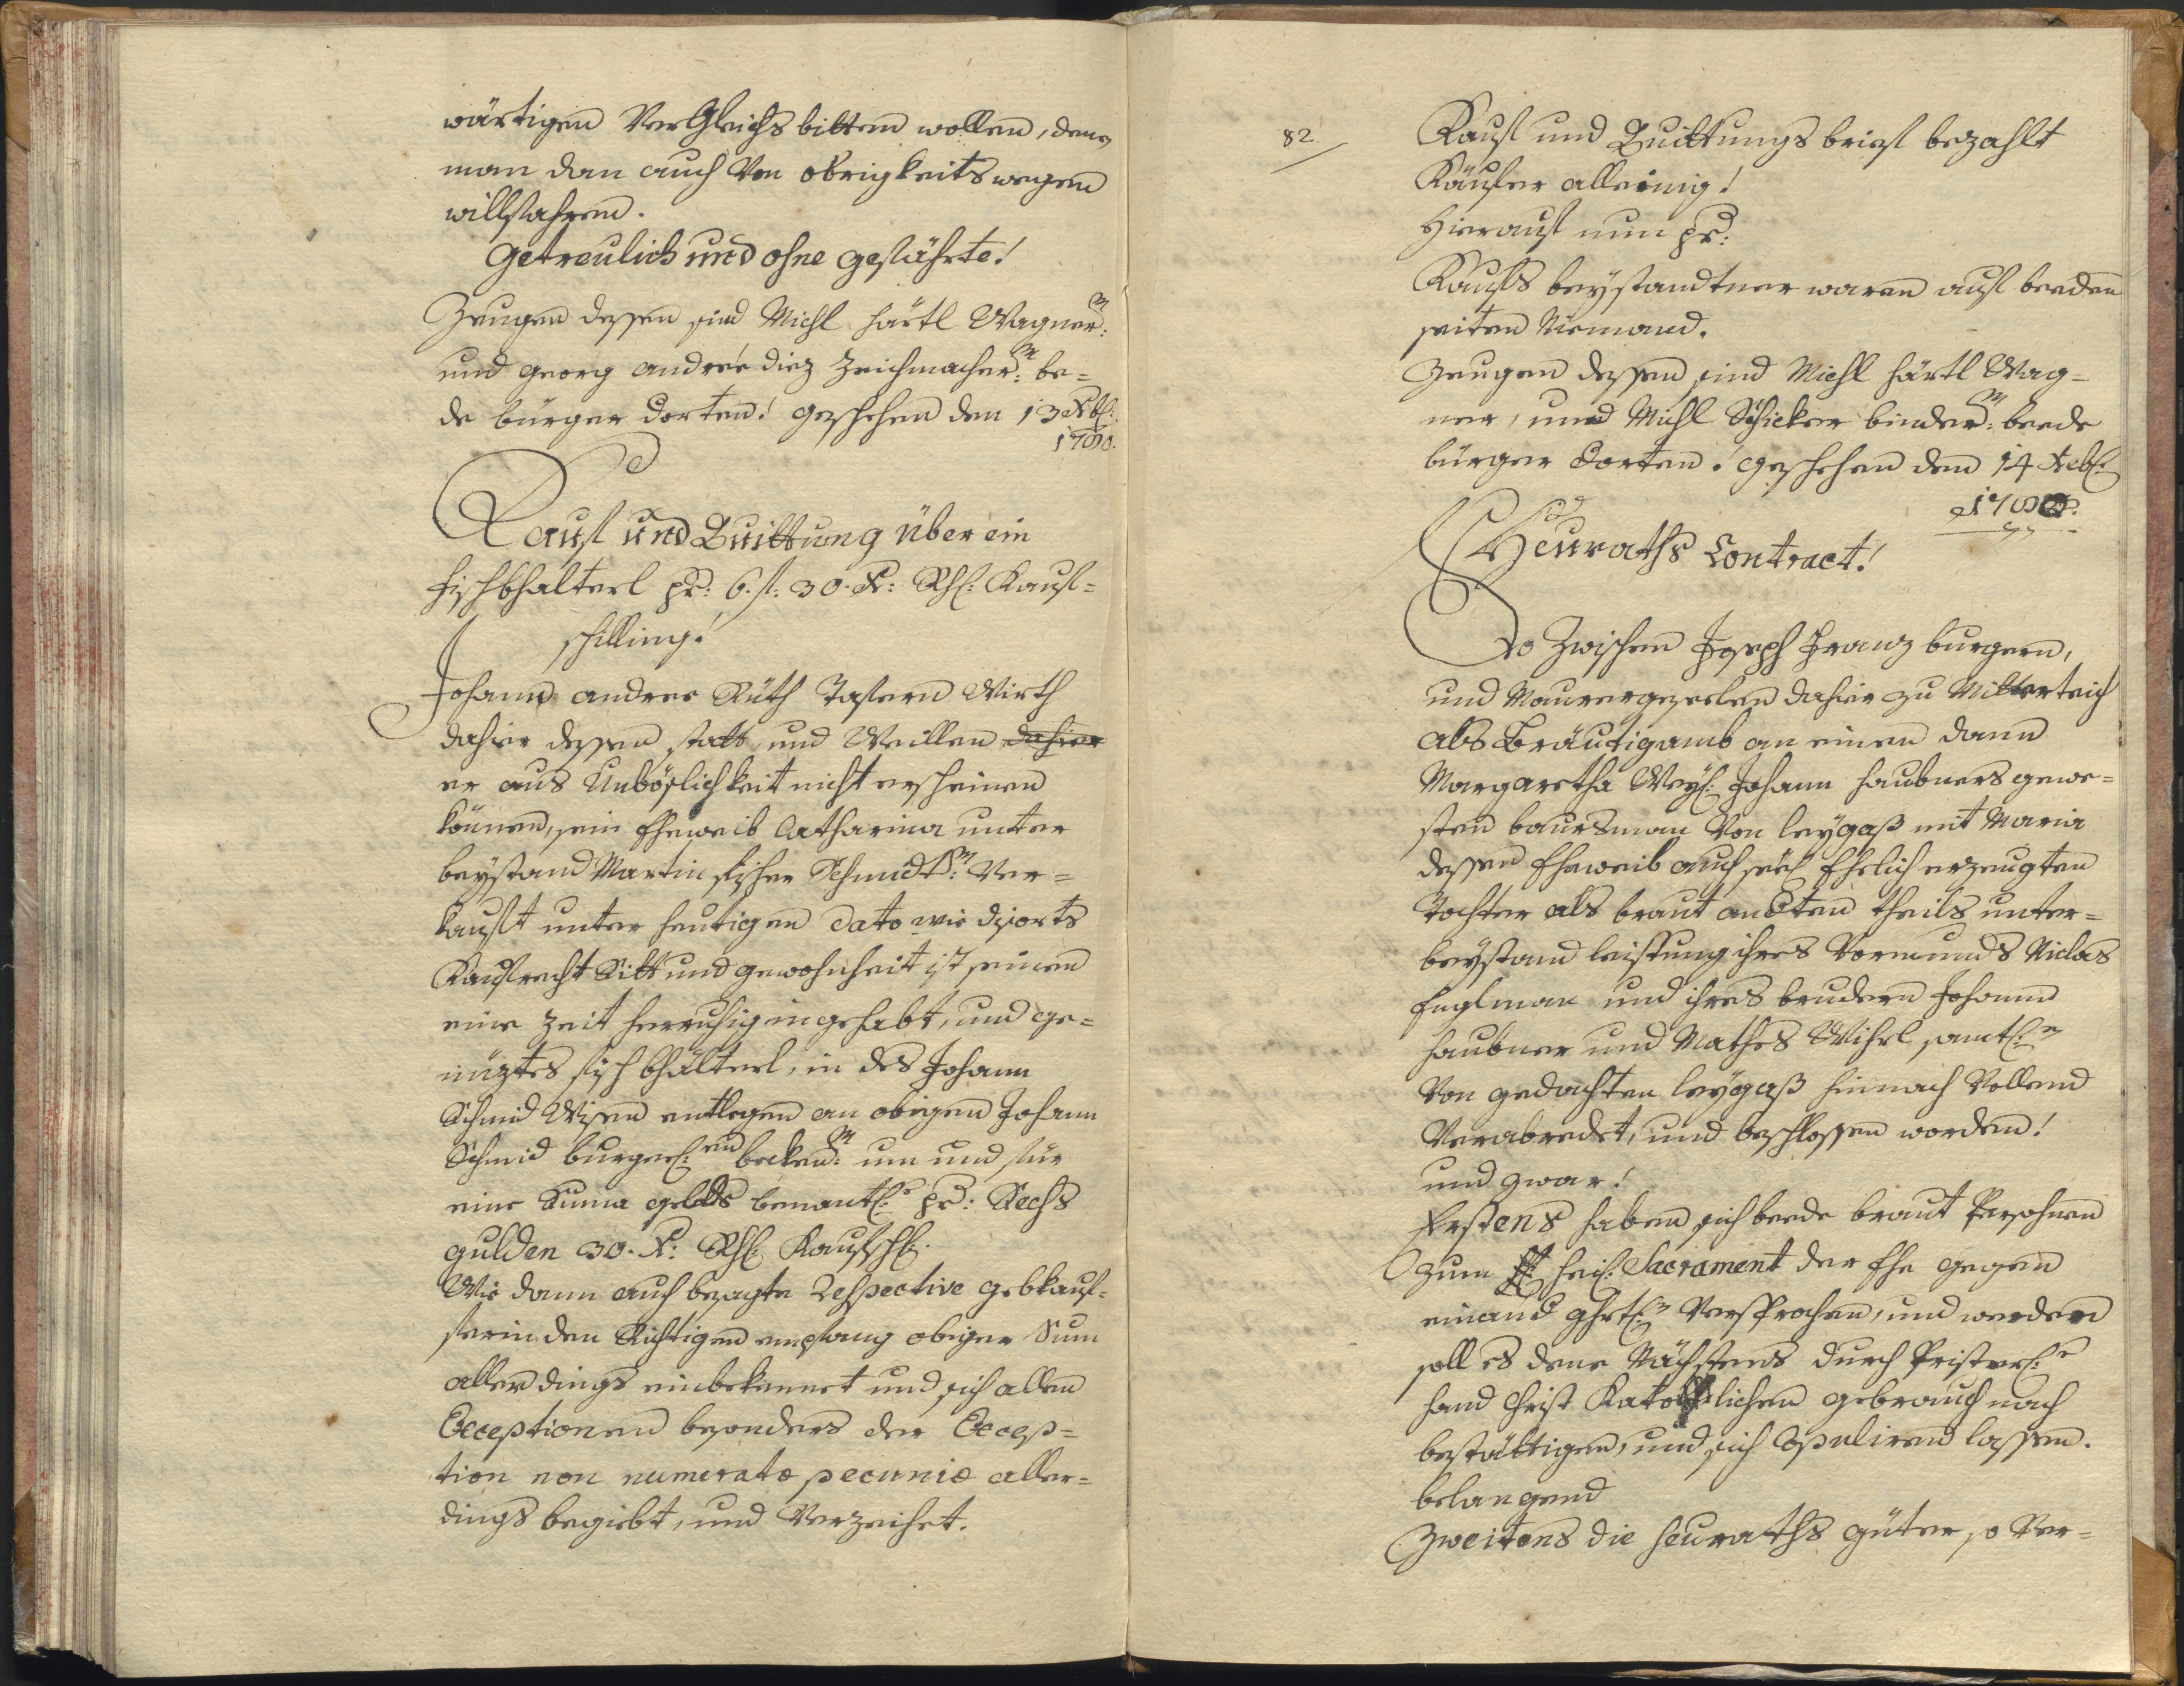 wärtigen VerGleichs bitten wollen, deme
man dan auch Von obrigkeits wegen
willfahren.
Getreulich und ohne gefährte!
Zeugen dessen sind Michl härtl Wagner m:
und georg andreé diez Zeichmacher m: be=
de bürger dorten! geschehen den 13 Xbr:
1780.
Kauf und Quittung über ein
fischbhalterl pr: 6. f: 30. Xr: Rhs: Kauf=
schilling!
Johann andree Rüth Tafern Wirth
dahier dessen statt und Weillen dahier
er aus Unbößlichkeit nicht erscheinen
können, sein Eheweib Catharina unter
beystand Martin fischer Schmidt m: Ver=
kauft unter heutigen dato wie disorts
Kaufrecht Sitt und gewohnheit ist seinen
eine Zeit herruhig ingehabt, und ge=
nüztes fisch bhälterl, in des Johann
Schmid Wisen entlegen an obigen Johann
Schmid burgerl: en becken m: um und für
eine Suma gelds benantl: pr: Sechs
gulden 30. Xr: Rhs: Kaufschl:
Wie dann auch besagte Respective gebkauf=
ferin den Richtigen empfang obiger Sum
allerdings einbekennet und sich allen
Exceptionen besonders der Excep=
tion non numeratæ pecuniæ aller=
dings begiebt, und Verzeihet.
82.
Kauf und Quittungs brief bezahlt
Käufer alleinig!
hierauf nun pr:
Kaufs beystandtner waren auf beeden
seiten Niemand.
Zeugen dessen sind Michl härtl Wag=
ner, und Michl Schicker binder m: beede
bürger dorten! geschehen den 14 Xbr:
1780.
Heuraths Contract!
So Zwischen Joseph Franz burgern,
und Maurergesellen dahier zu Mitterteich
als Bräutigamb an einen dann
Margaretha Weyl: Johann haubners gewe=
sten baursman Von leÿgaß mit Maria
dessen Eheweib auch seel: Ehelich erzeugten
Tochter als braut andten theils unter=
beystand leistung ihres Vormunds Niclas
Englman und ihres brudern Johann
haubner und Mathes Wihrl samtl: n
Von gedachten leÿgaß hinnach Vollend
Verabredet, und beschlossen worden!
und zwar!
Erstens haben sich beede braut Persohnen
zum heil: Sacrament der Ehe gegen
einand Versprochen, und werden
soll es dene Nächstens durch Pristerl: r
hand Christ Katollischen gebrauch nach
bestättigen, und sich Copuliren lassen.
belangend
Zweitens die heuraths güter, so Ver=